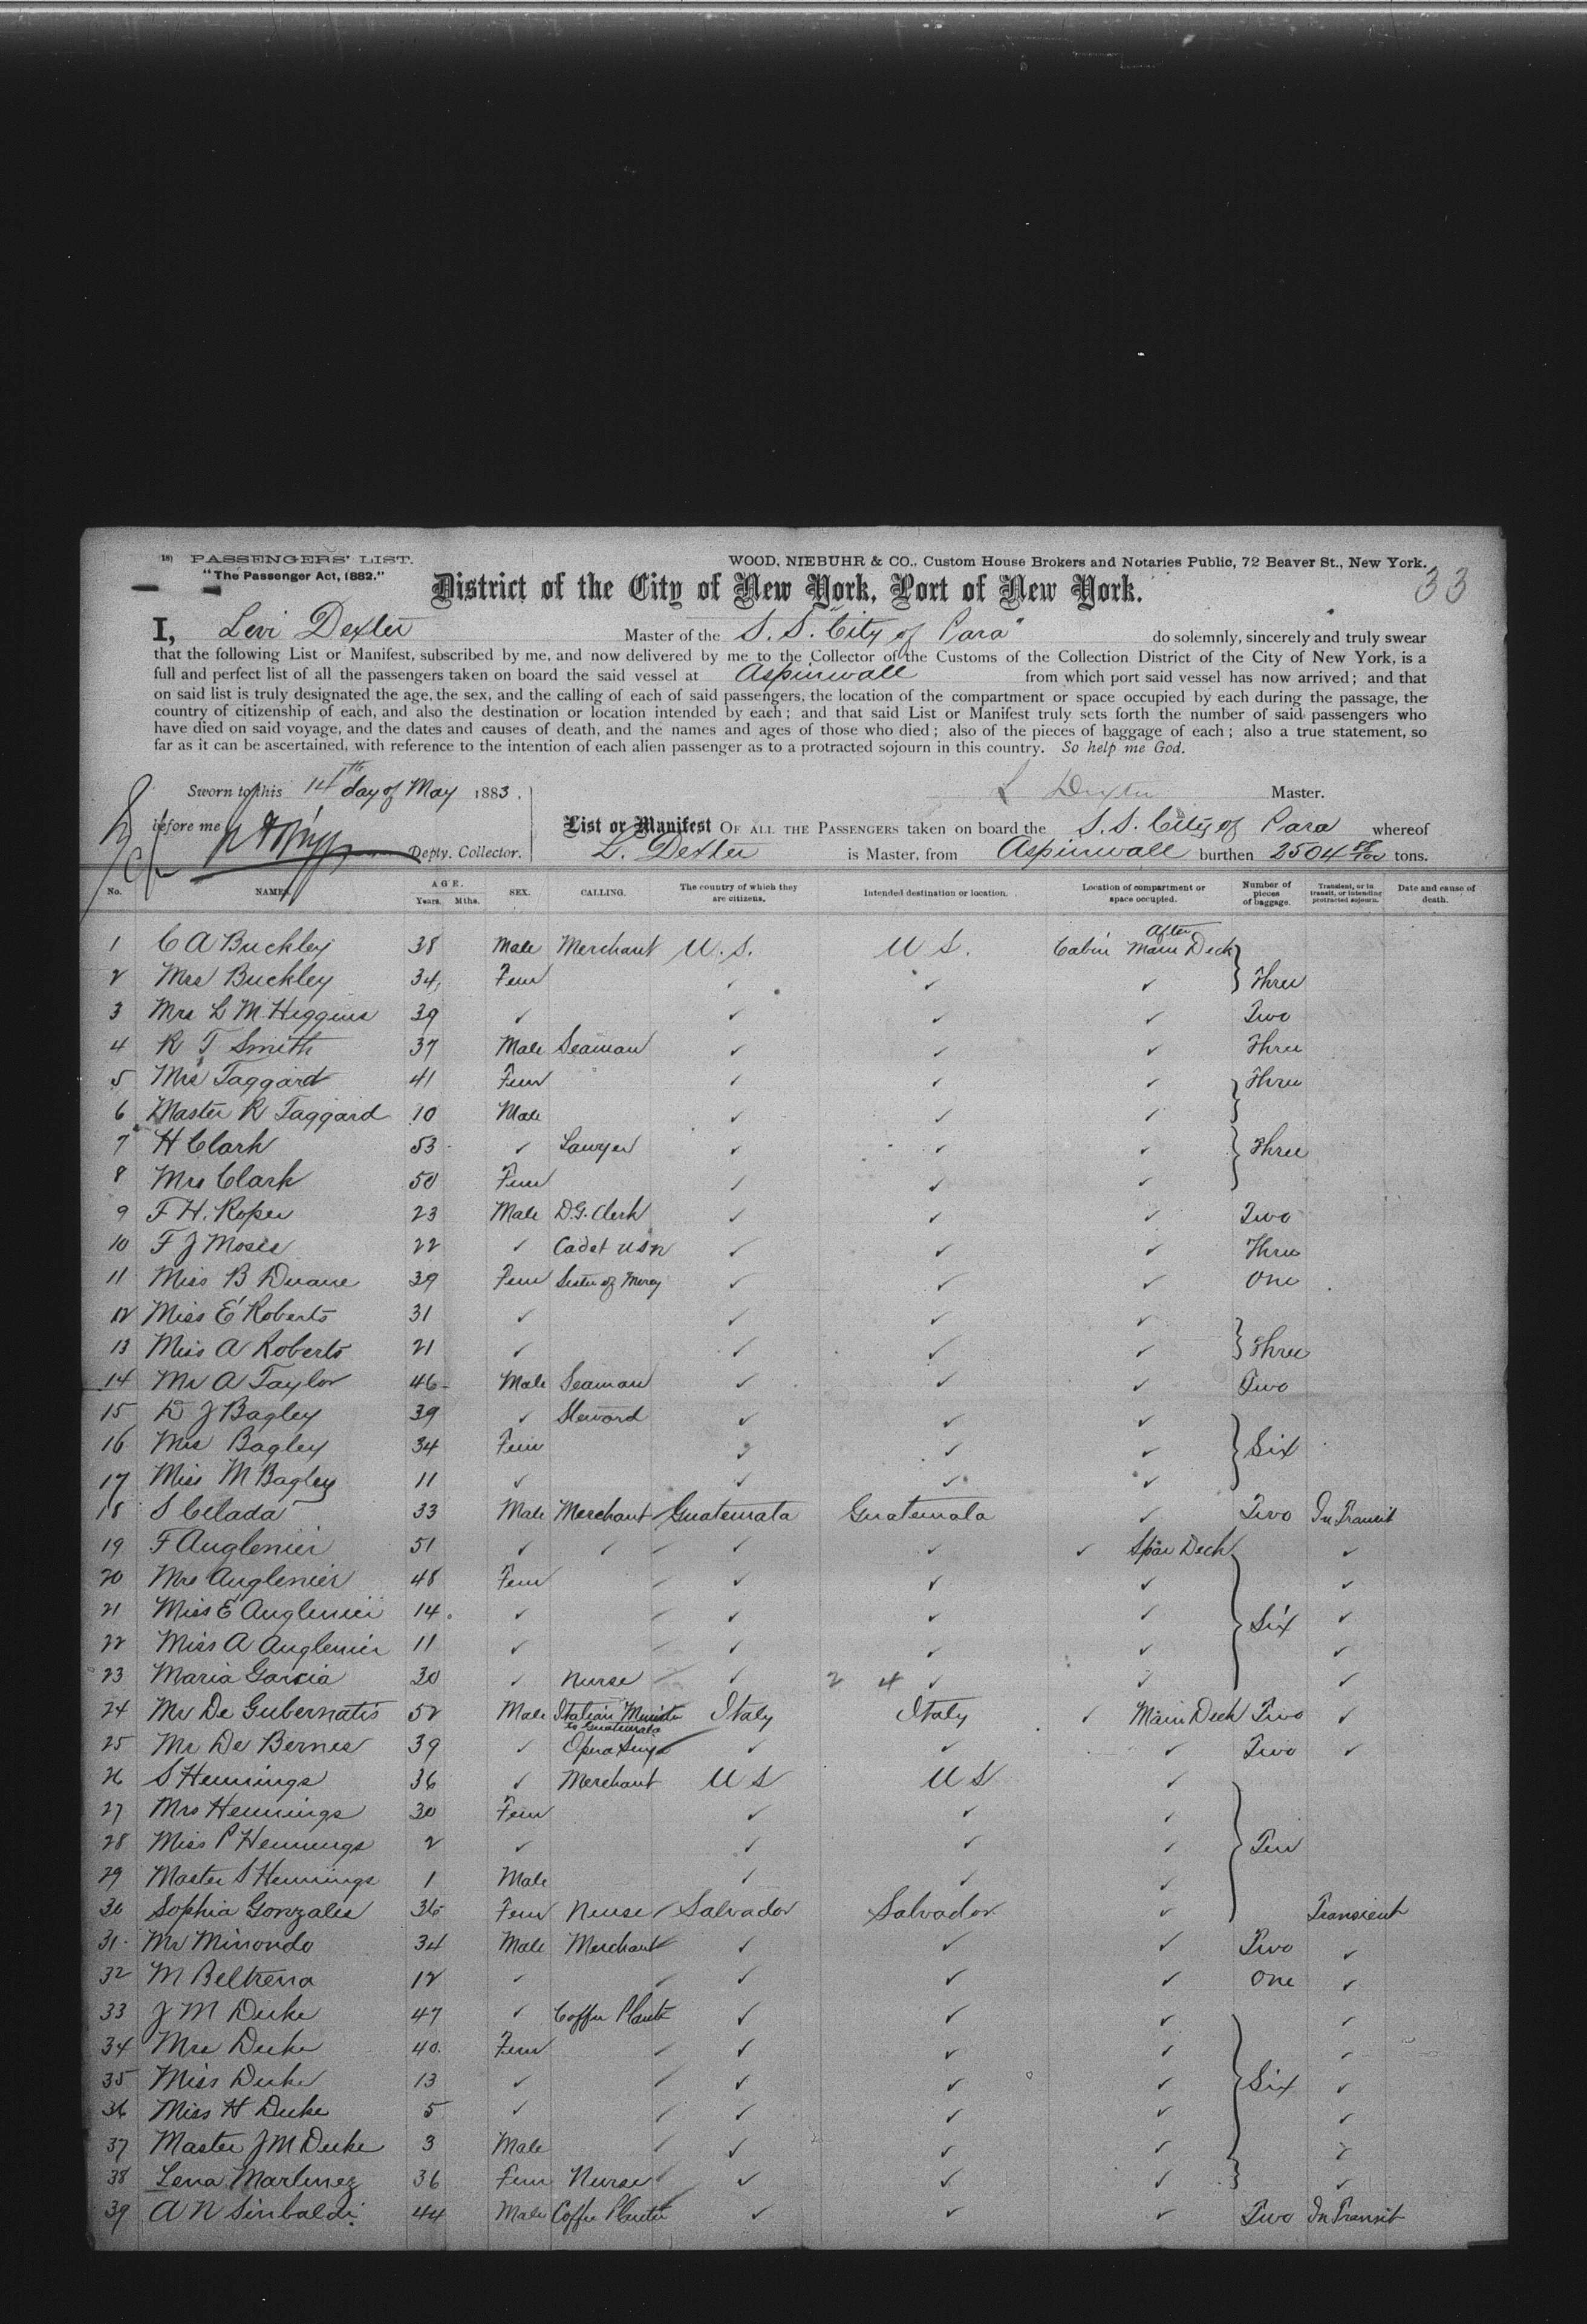 18) PASSENGERS' LIST.
"The Passenger Act, 1882."
WOOD, NIEBUHR & CO., Custom House Brokers and Notaries Public, 72 Beaver St., New York.
33
District of the City of New York, Port of New York.
I, Levi Dexter Master of the S. S. "City of Para" do solemnly, sincerely and truly swear
that the following List or Manifest, subscribed by me, and now delivered by me to the Collector of the Customs of the Collection District of the City of New York, is a
full and perfect list of all the passengers taken on board the said vessel at Aspinwall from which port said vessel has now arrived; and that
on said list is truly designated the age, the sex, and the calling of each of said passengers, the location of the compartment or space occupied by each during the passage, the
country of citizenship of each, and also the destination or location intended by each; and that said List or Manifest truly sets forth the number of said passengers who
have died on said voyage, and the dates and causes of death, and the names and ages of those who died; also of the pieces of baggage of each; also a true statement, so
far as it can be ascertained, with reference to the intention of each alien passenger as to a protracted sojourn in this country. So help me God.
Sworn to this 14th day of May 1883.
L Dexter Master.
before me
Depty. Collector.
List or Manifest OF ALL THE PASSENGERS taken on board the S. S. City of Para whereof
L. Dexter is Master, from Aspinwall burthen 2504 tons.
No. NAMES. AGE. Years. Mths. SEX. CALLING. The country of which they are citizens. Intended destination or location. Location of compartment or space occupied. Number of pieces of baggage. Transient, or in transit, or intending protracted sojourn. Date and cause of death.
1 C A Buckley 38 Male Merchant U. S. U S. Cabin After Main Deck
2 Mrs Buckley 34 Fem ✓ ✓ ✓ Three
3 Mrs L M Higgins 39 ✓ ✓ ✓ ✓ Two
4 R T Smith 37 Male Seaman ✓ ✓ ✓ Three
5 Mrs Taggard 41 Fem ✓ ✓ ✓ Three
6 Master R Taggard 10 Male ✓ ✓ ✓
7 H Clark 53 ✓ Lawyer ✓ ✓ ✓ Three
8 Mrs Clark 50 Fem ✓ ✓ ✓
9 F H. Roper 23 Male D.G. Clerk ✓ ✓ ✓ Two
10 F J Moses 22 ✓ Cadet USN ✓ ✓ ✓ Three
11 Miss B Duane 39 Fem Sister of Mercy ✓ ✓ ✓ One
12 Miss E Roberts 31 ✓ ✓ ✓ ✓
13 Miss A Roberts 21 ✓ ✓ ✓ ✓ Three
14 Mr A Taylor 46 Male Seaman ✓ ✓ ✓ Two
15 D J Bagley 39 ✓ Steward ✓ ✓ ✓
16 Mrs Bagley 34 Fem ✓ ✓ ✓ Six
17 Miss M Bagley 11 ✓ ✓ ✓ ✓
18 S Celada 33 Male Merchant Guatemala Guatemala ✓ Two In Transit
19 F Anglenier 51 ✓ ✓ ✓ ✓ ✓ Spar Deck ✓
20 Mrs Anglenier 48 Fem ✓ ✓ ✓ ✓
21 Miss E Anglenier 14 ✓ ✓ ✓ ✓ Six ✓
22 Miss A Anglenier 11 ✓ ✓ ✓ ✓ ✓
23 Maria Garcia 30 ✓ Nurse ✓ 2 4 ✓ ✓ ✓
24 Mr De Gubernatis 52 Male Italian Minister to Guatemala Italy Italy ✓ Main Deck Two ✓
25 Mr De Bernes 39 ✓ Opera Singer ✓ ✓ ✓ Two ✓
26 S Hennings 36 ✓ Merchant U S U S ✓
27 Mrs Hennings 30 Fem ✓ ✓ ✓
28 Miss P Hennings 2 ✓ ✓ ✓ ✓ Ten
29 Master S Hennings 1 Male ✓ ✓ ✓
30 Sophia Gonzales 36 Fem Nurse Salvador Salvador ✓ Transient
31 Mr Minondo 34 Male Merchant ✓ ✓ ✓ Two ✓
32 M Beltrena 12 ✓ ✓ ✓ ✓ One ✓
33 J M Duke 47 ✓ Coffee Planter ✓ ✓ ✓ ✓
34 Mrs Duke 40 Fem ✓ ✓ ✓ ✓
35 Miss Duke 13 ✓ ✓ ✓ ✓ Six ✓
36 Miss H Duke 5 ✓ ✓ ✓ ✓ ✓
37 Master J M Duke 3 Male ✓ ✓ ✓ ✓
38 Lena Martinez 36 Fem Nurse ✓ ✓ ✓ ✓
39 A N Sinibaldi 44 Male Coffee Planter ✓ ✓ ✓ Two In Transit